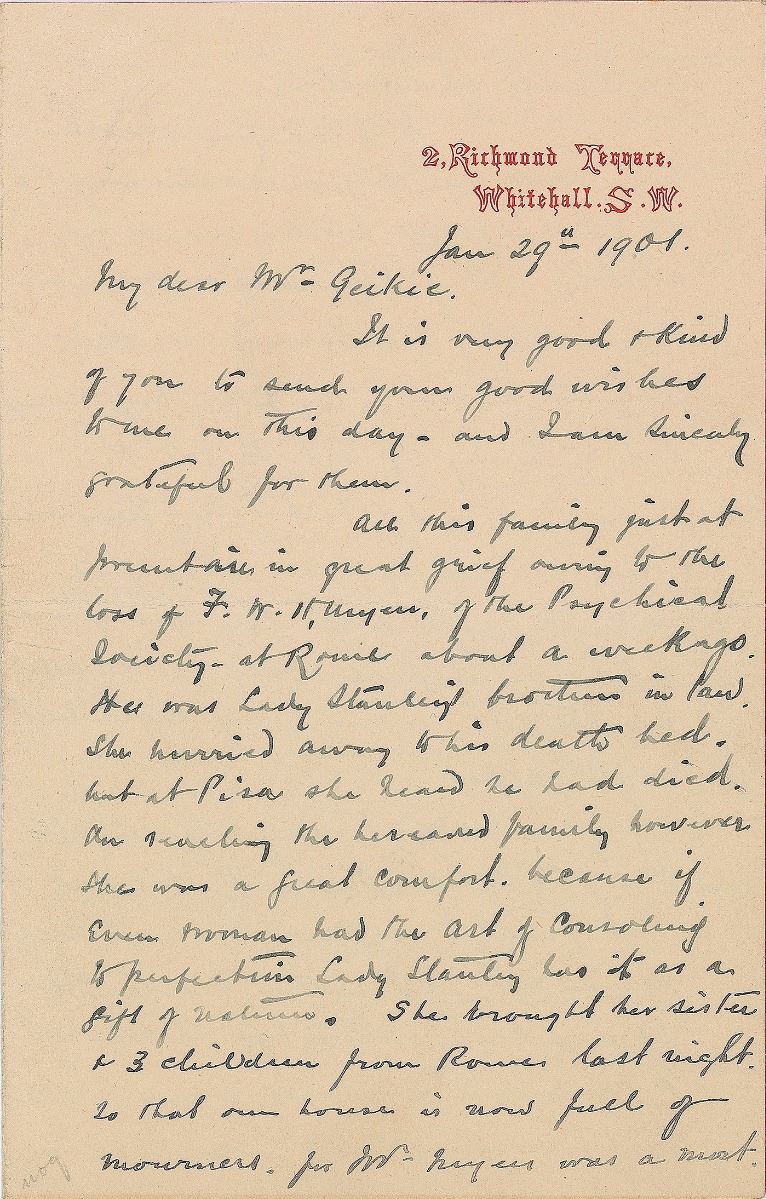 2, Richmond Terrace,
Whitehall. S.W.
Jan 29th 1901.
My dear Mr Geikie.
It is very good & kind
of you to send your good wishes
to me on this day - and I am sincerely
grateful for them.
All this family just at
present are in great grief owing to the
loss of F. W. H. Myers, of the Psychical
Society - at Rome about a week ago.
He was Lady Stanley's brother in law.
She hurried away to his death bed.
but at Pisa she heard he had died.
On reaching the bereaved family however
she was a great comfort. because if
ever woman had the art of consoling
to perfection Lady Stanley has it as a
gift of nature. She brought her sister
& 3 children from Rome last night.
so that our house is now full of
mourners. for Mr Myers was a most